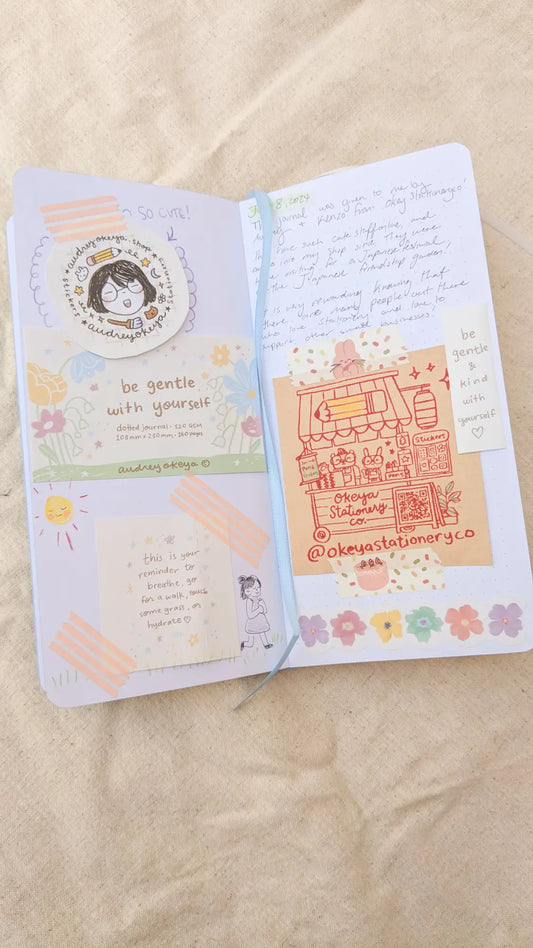 SO CUTE!
audreyokeya.shop
stickers
audreyokeya
be gentle
with yourself
dotted journal - 120 GSM
108 mm x 210 mm - 160 pages
audreyokeya ©
this is your
reminder to
breathe, go
for a walk, touch
some grass, or
hydrate ♡
8, 2024
journal was given to me by
+ Kenzo from Okeya Stationery Co!
such cute stuff online, and
my shop since they were
for a Japanese festival
the Japanese friendship garden,
is very rewarding knowing that
there are many people out there
who love stationery and love to
support other small businesses.
be
gentle
&
kind
with
yourself
♡
Stickers
Pens
Okeya
Stationery
Co.
@okeyastationeryco